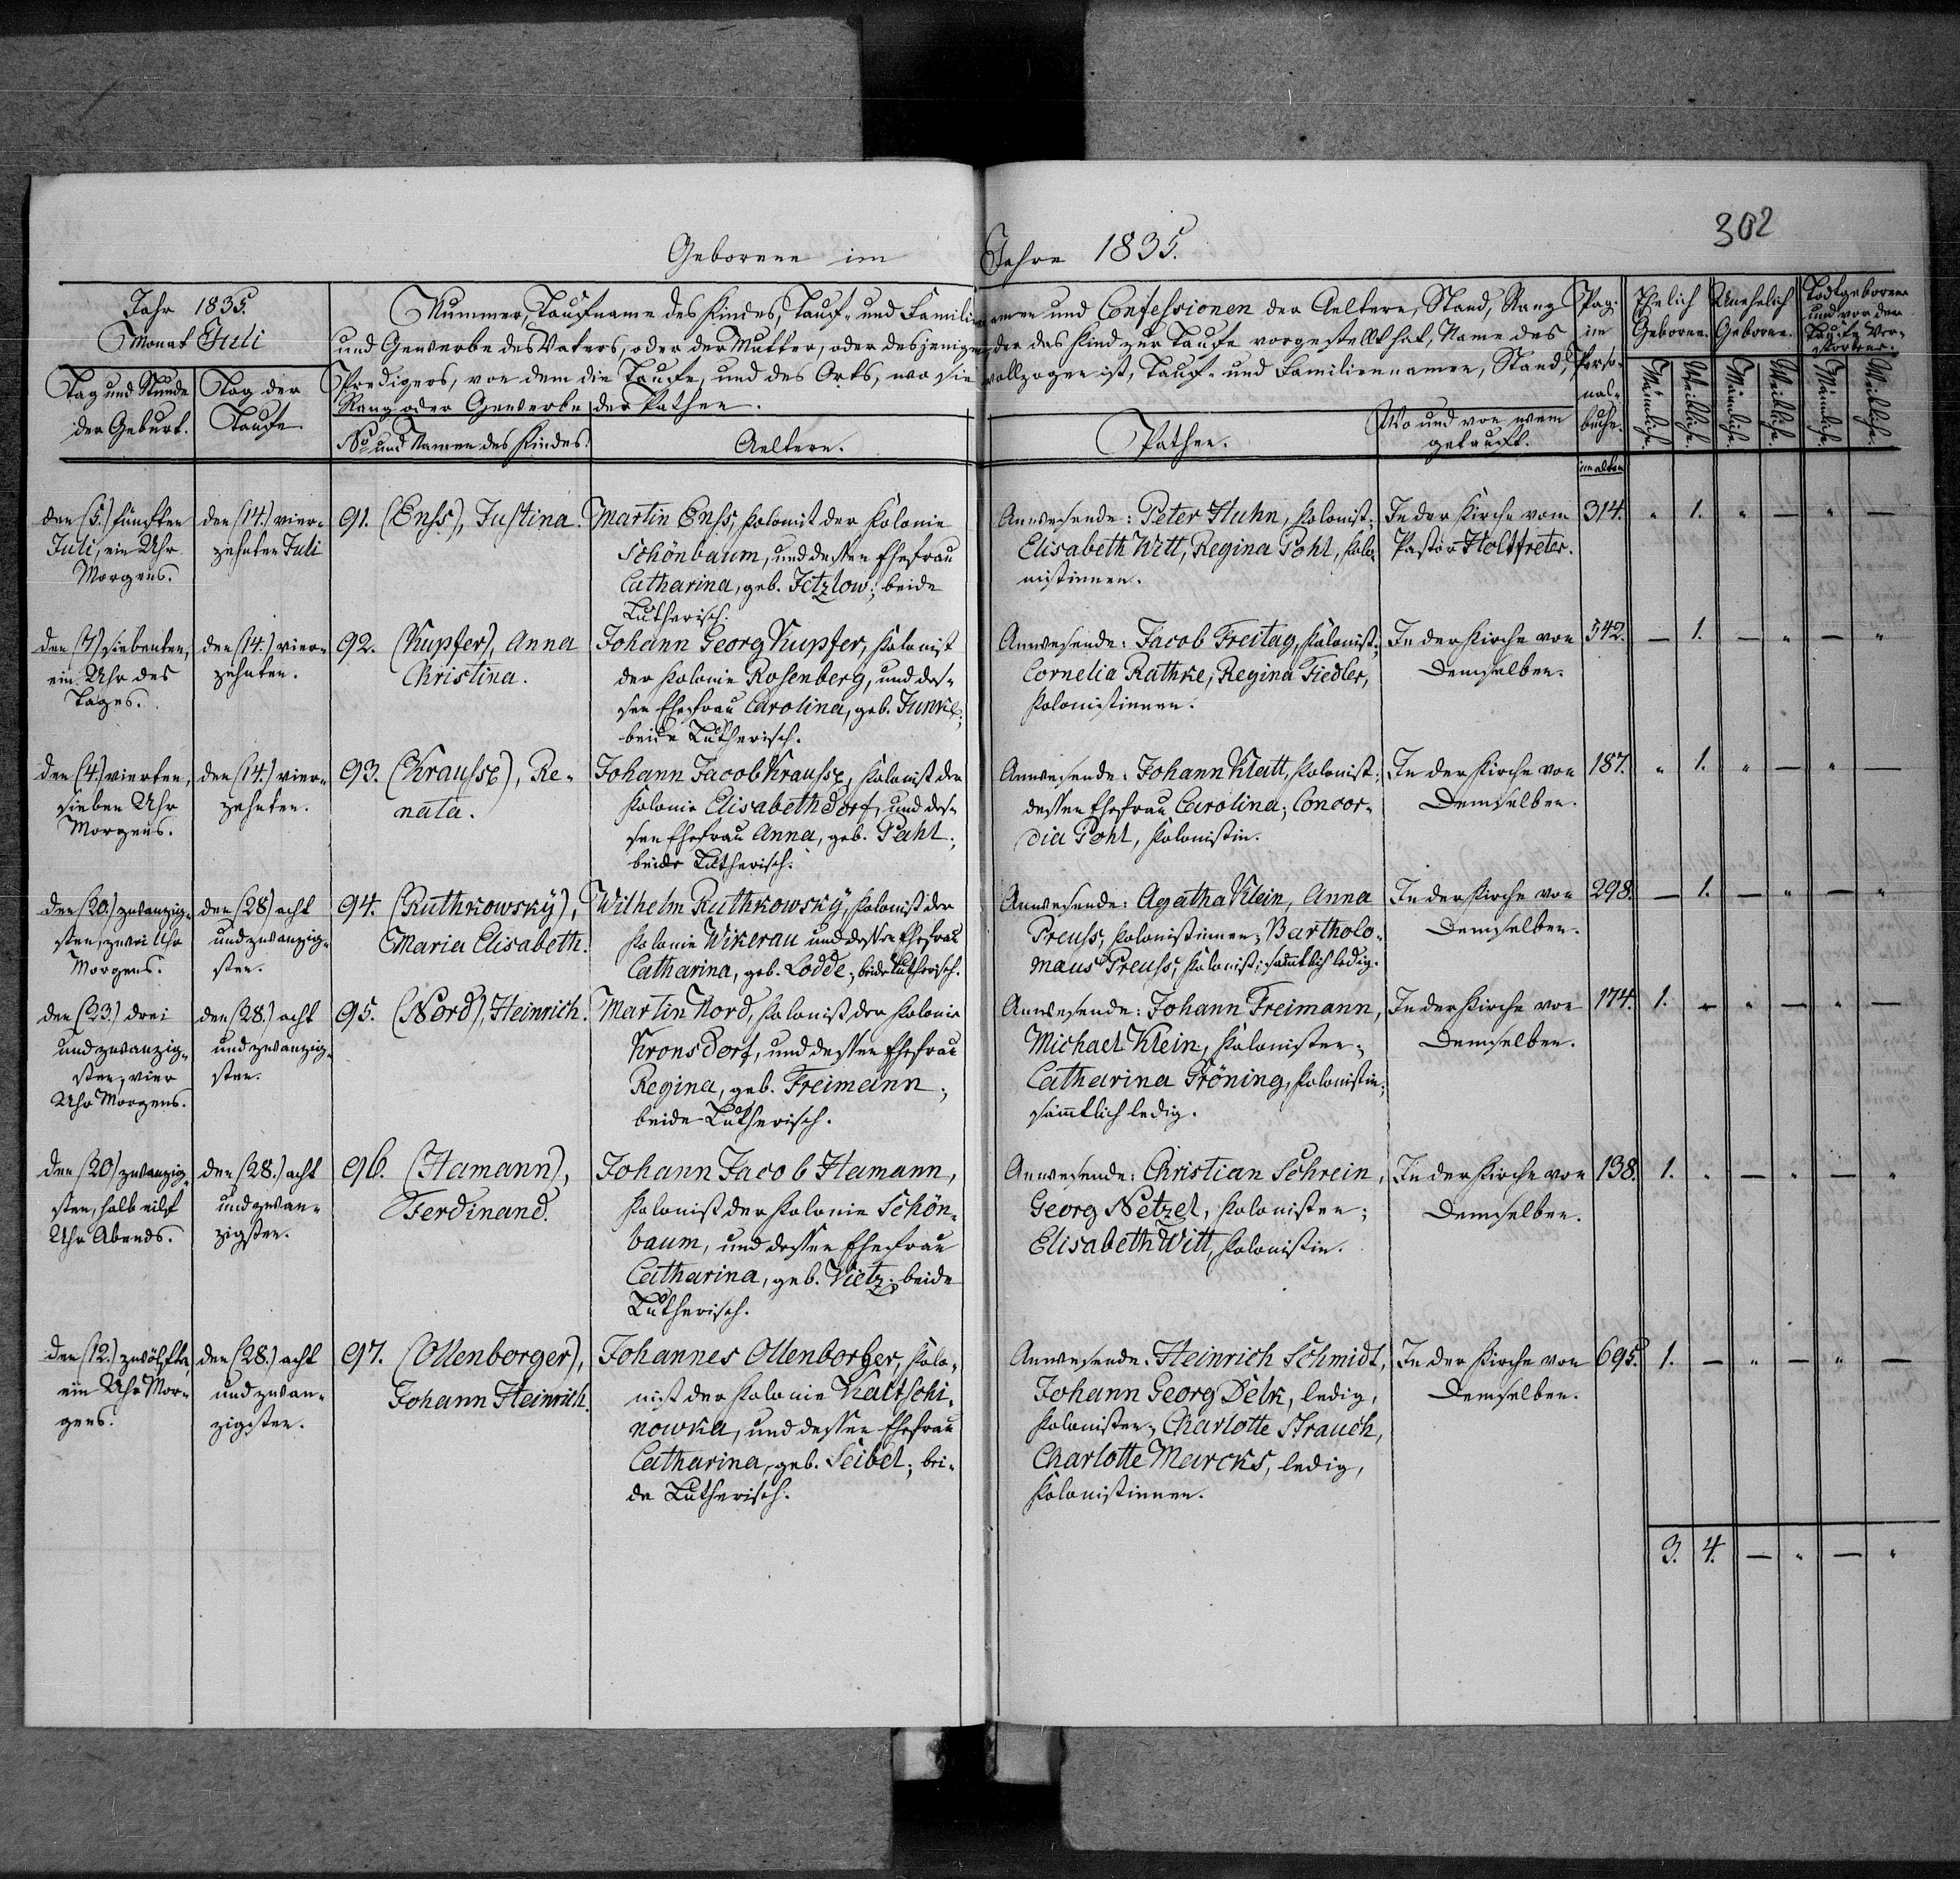 302
Geborene im Jahre 1835.
Jahr 1835.
Monat Juli
Tag und Stunde der Geburt.
Tag der Taufe.
Nummer, Taufname des Kindes, Tauf- und Familiennamen und Confessionen der Aeltern, Stand, Rang
und Gewerbe des Vaters, oder der Mutter, oder desjenigen, der das Kind zur Taufe vorgestellt hat, Name des
Predigers, von dem die Taufe, und des Orts, wo sie vollzogen ist, Tauf- und Familiennamen, Stand,
Rang oder Gewerbe der Pathen.
No und Namen des Kindes.
Aeltern.
Pathen.
Wo und von wem
getauft.
Pag.
im
Perso-
nal-
buche.
Ehelich
Geboren.
Unehelich
Geboren.
Todtgeborene
und vor der
Taufe Ver-
storbene.
Männliche.
Weibliche.
Männliche.
Weibliche.
Männliche.
Weibliche.
im alten
den (5.) fünften
Juli, ein Uhr
Morgens.
den (14.) vier-
zehnten Juli
91. (Enss), Justina.
Martin Enss, Kolonist der Kolonie
Schönbaum, und dessen Ehefrau
Catharina, geb. Jetzlow; beide
Lutherisch.
Anwesende: Peter Huhn, Kolonist;
Elisabeth Witt, Regina Pohl, Kolo-
nistinnen.
In der Kirche vom
Pastor Holtfreter.
314. " 1. " — " —
den (7.) siebenten,
ein Uhr des
Tages.
den (14.) vier-
zehnten.
92. (Kupfer), Anna
Christina.
Johann Georg Kupfer, Kolonist
der Kolonie Rosenberg, und des-
sen Ehefrau Carolina, geb. Junke;
beide Lutherisch.
Anwesende: Jacob Freitag, Kolonist;
Cornelia Rathke, Regina Fiedler,
Kolonistinnen.
In der Kirche von
Demselben.
542. — 1. — " — "
den (4.) vierten,
sieben Uhr
Morgens.
den (14.) vier-
zehnten.
93. (Krausse), Re-
nata.
Johann Jacob Krausse, Kolonist der
Kolonie Elisabethdorf, und des-
sen Ehefrau Anna, geb. Pahl;
beide Lutherisch.
Anwesende: Johann Klatt, Kolonist;
dessen Ehefrau Carolina; Concor-
dia Pohl, Kolonistin.
In der Kirche von
Demselben.
187. " 1. " — " —
den (20.) zwanzig-
sten, zwei Uhr
Morgens.
den (28) acht
und zwanzig-
sten.
94. (Ruthkowsky),
Maria Elisabeth.
Wilhelm Ruthkowsky, Kolonist der
Kolonie Wikerau und dessen Ehefrau
Catharina, geb. Lodde; beide Lutherisch.
Anwesende: Agatha Klein, Anna
Preuss, Kolonistinnen; Bartholo-
maus Preuss, Kolonist; sämtlich ledig.
In der Kirche von
Demselben.
298. — 1. — " — "
den (23.) drei
und zwanzig-
sten, vier
Uhr Morgens.
den (28.) acht
und zwanzig-
sten.
95. (Nord), Heinrich.
Martin Nord, Kolonist der Kolonie
Kronsdorf, und dessen Ehefrau
Regina, geb. Freimann;
beide Lutherisch.
Anwesende: Johann Freimann,
Michael Klein, Kolonisten;
Catharina Gröning, Kolonistin;
sämtlich ledig.
In der Kirche von
Demselben.
174. 1. — " — " —
den (20) zwanzig-
sten, halb eilf
Uhr Abends.
den (28.) acht
und zwan-
zigsten.
96. (Hamann),
Ferdinand.
Johann Jacob Hamann,
Kolonist der Kolonie Schön-
baum, und dessen Ehefrau
Catharina, geb. Vietz; beide
Lutherisch.
Anwesende: Christian Schrein,
Georg Netzel, Kolonisten;
Elisabeth Witt, Kolonistin.
In der Kirche von
Demselben.
138. 1. " — " — "
den (12.) zwölften,
ein Uhr Mor-
gens.
den (28.) acht
und zwan-
zigsten.
97. (Ollenborger),
Johann Heinrich.
Johannes Ollenborger, Kolo-
nist der Kolonie Kaltschi-
nowka, und dessen Ehefrau
Catharina, geb. Seibel; bei-
de Lutherisch.
Anwesende: Heinrich Schmidt,
Johann Georg Delk, ledig,
Kolonisten; Charlotte Strauch,
Charlotte Marcks, ledig,
Kolonistinnen.
In der Kirche von
Demselben.
695. 1. — " — " —
3. 4. — " — "